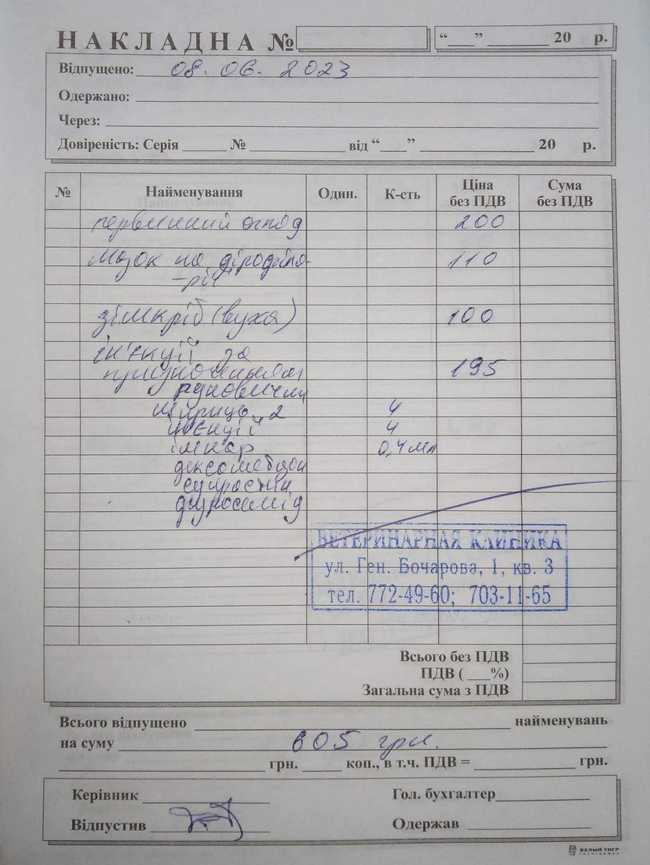 НАКЛАДНА №
“___” ________ 20 р.
Відпущено: 08. 06. 2023
Одержано:
Через:
Довіреність: Серія ______ № ____________ від “___” ______________ 20 р.
№ Найменування Один. К-сть Ціна без ПДВ Сума без ПДВ
первинний огляд 200
Мазок на 110
-рії
зішкріб (вуха) 100
ін'єкції за 195
призначенням
шприць 2 4
ін'єкції 4
0,4 мл
дексаметазон
супрастин
фуросемід
ВЕТЕРИНАРНАЯ КЛИНИКА
ул. Ген. Бочарова, 1, кв. 3
тел. 772-49-60; 703-11-65
Всього без ПДВ
ПДВ ( ___%)
Загальна сума з ПДВ
Всього відпущено найменувань
на суму 605 грн.
грн. _____ коп., в т.ч. ПДВ = грн.
Керівник Гол. бухгалтер
Відпустив Одержав
БЕЛЫЙ ТИГР